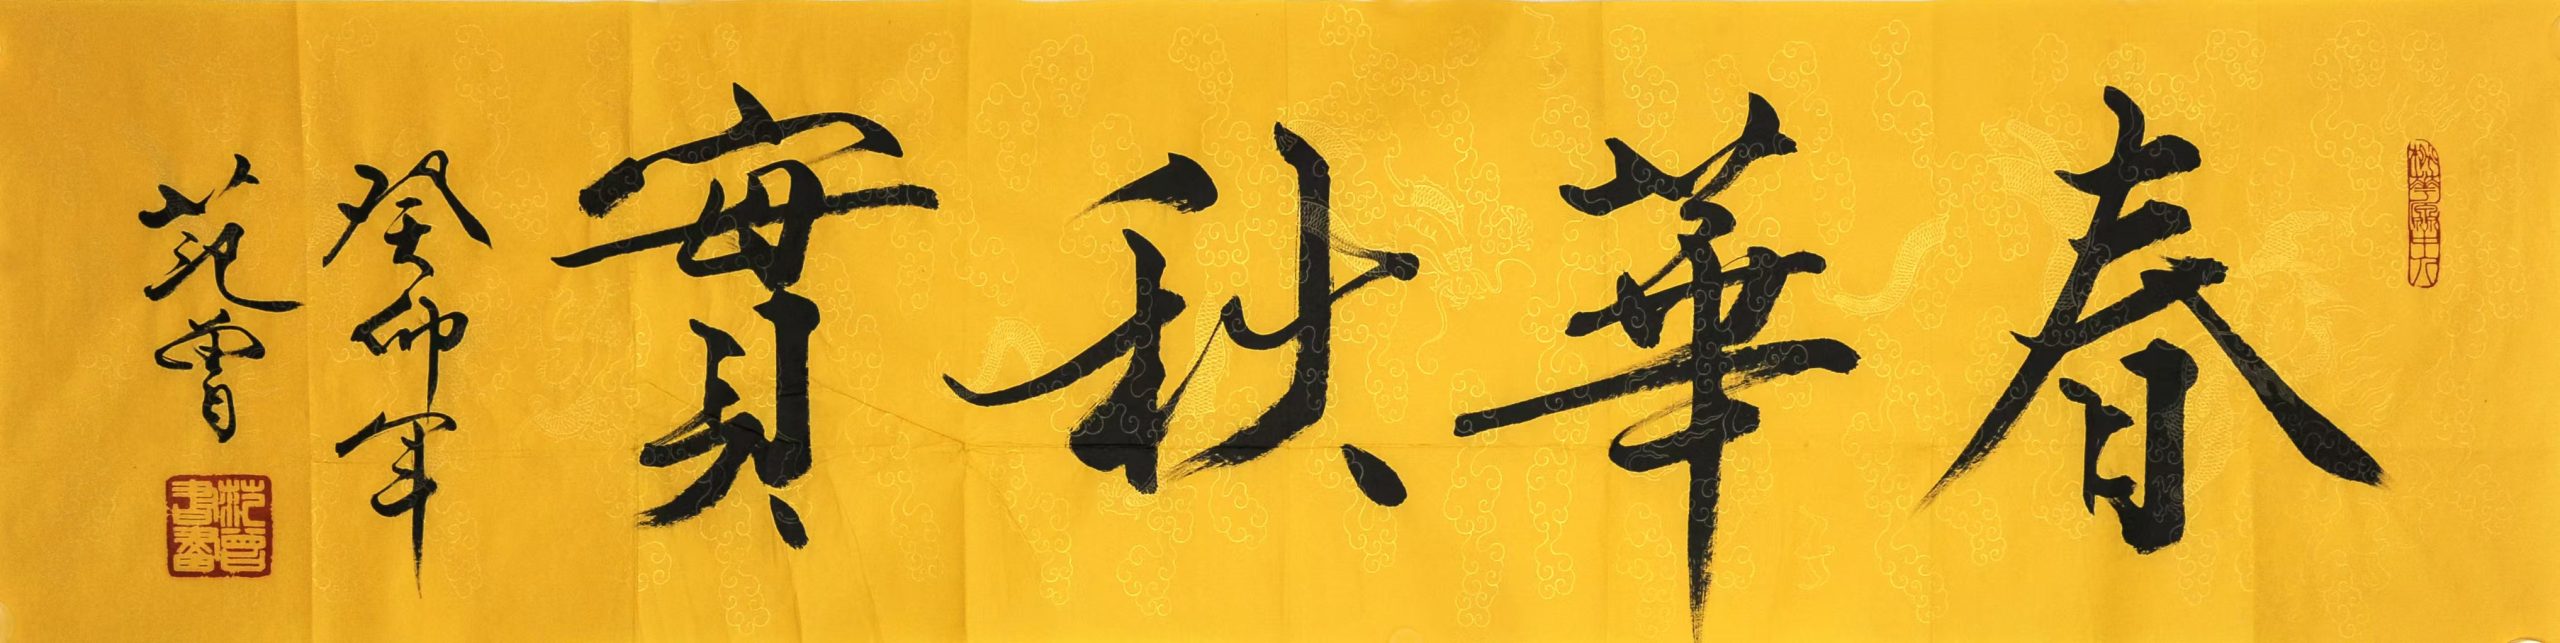 春華秋實
癸卯年
范曾
范曾
書畫